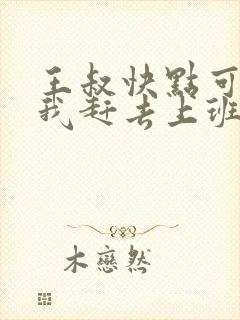 王叔快點可
我赶去上班
木戀然